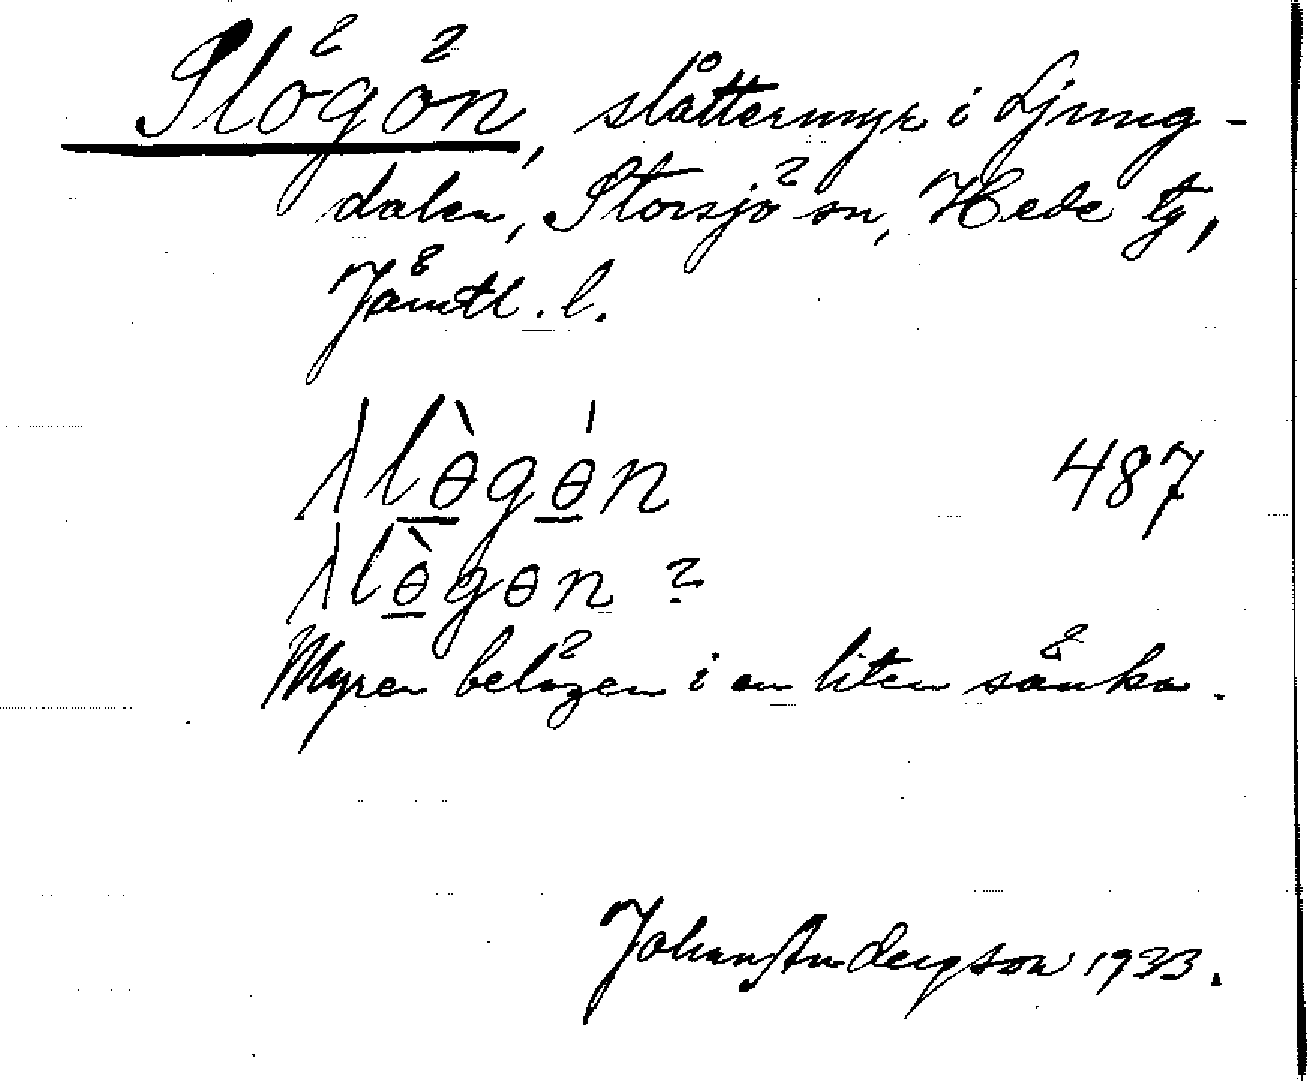 Slögön, slåttermyr i Ljung-
dalen, Storsjö sn, Hede tg,
Jämtl. l.
slɵ̀gɵ́n 487
slɵ̀gɵn ?
Myren belägen i en liten sänka.
Johan Anderson 1933.